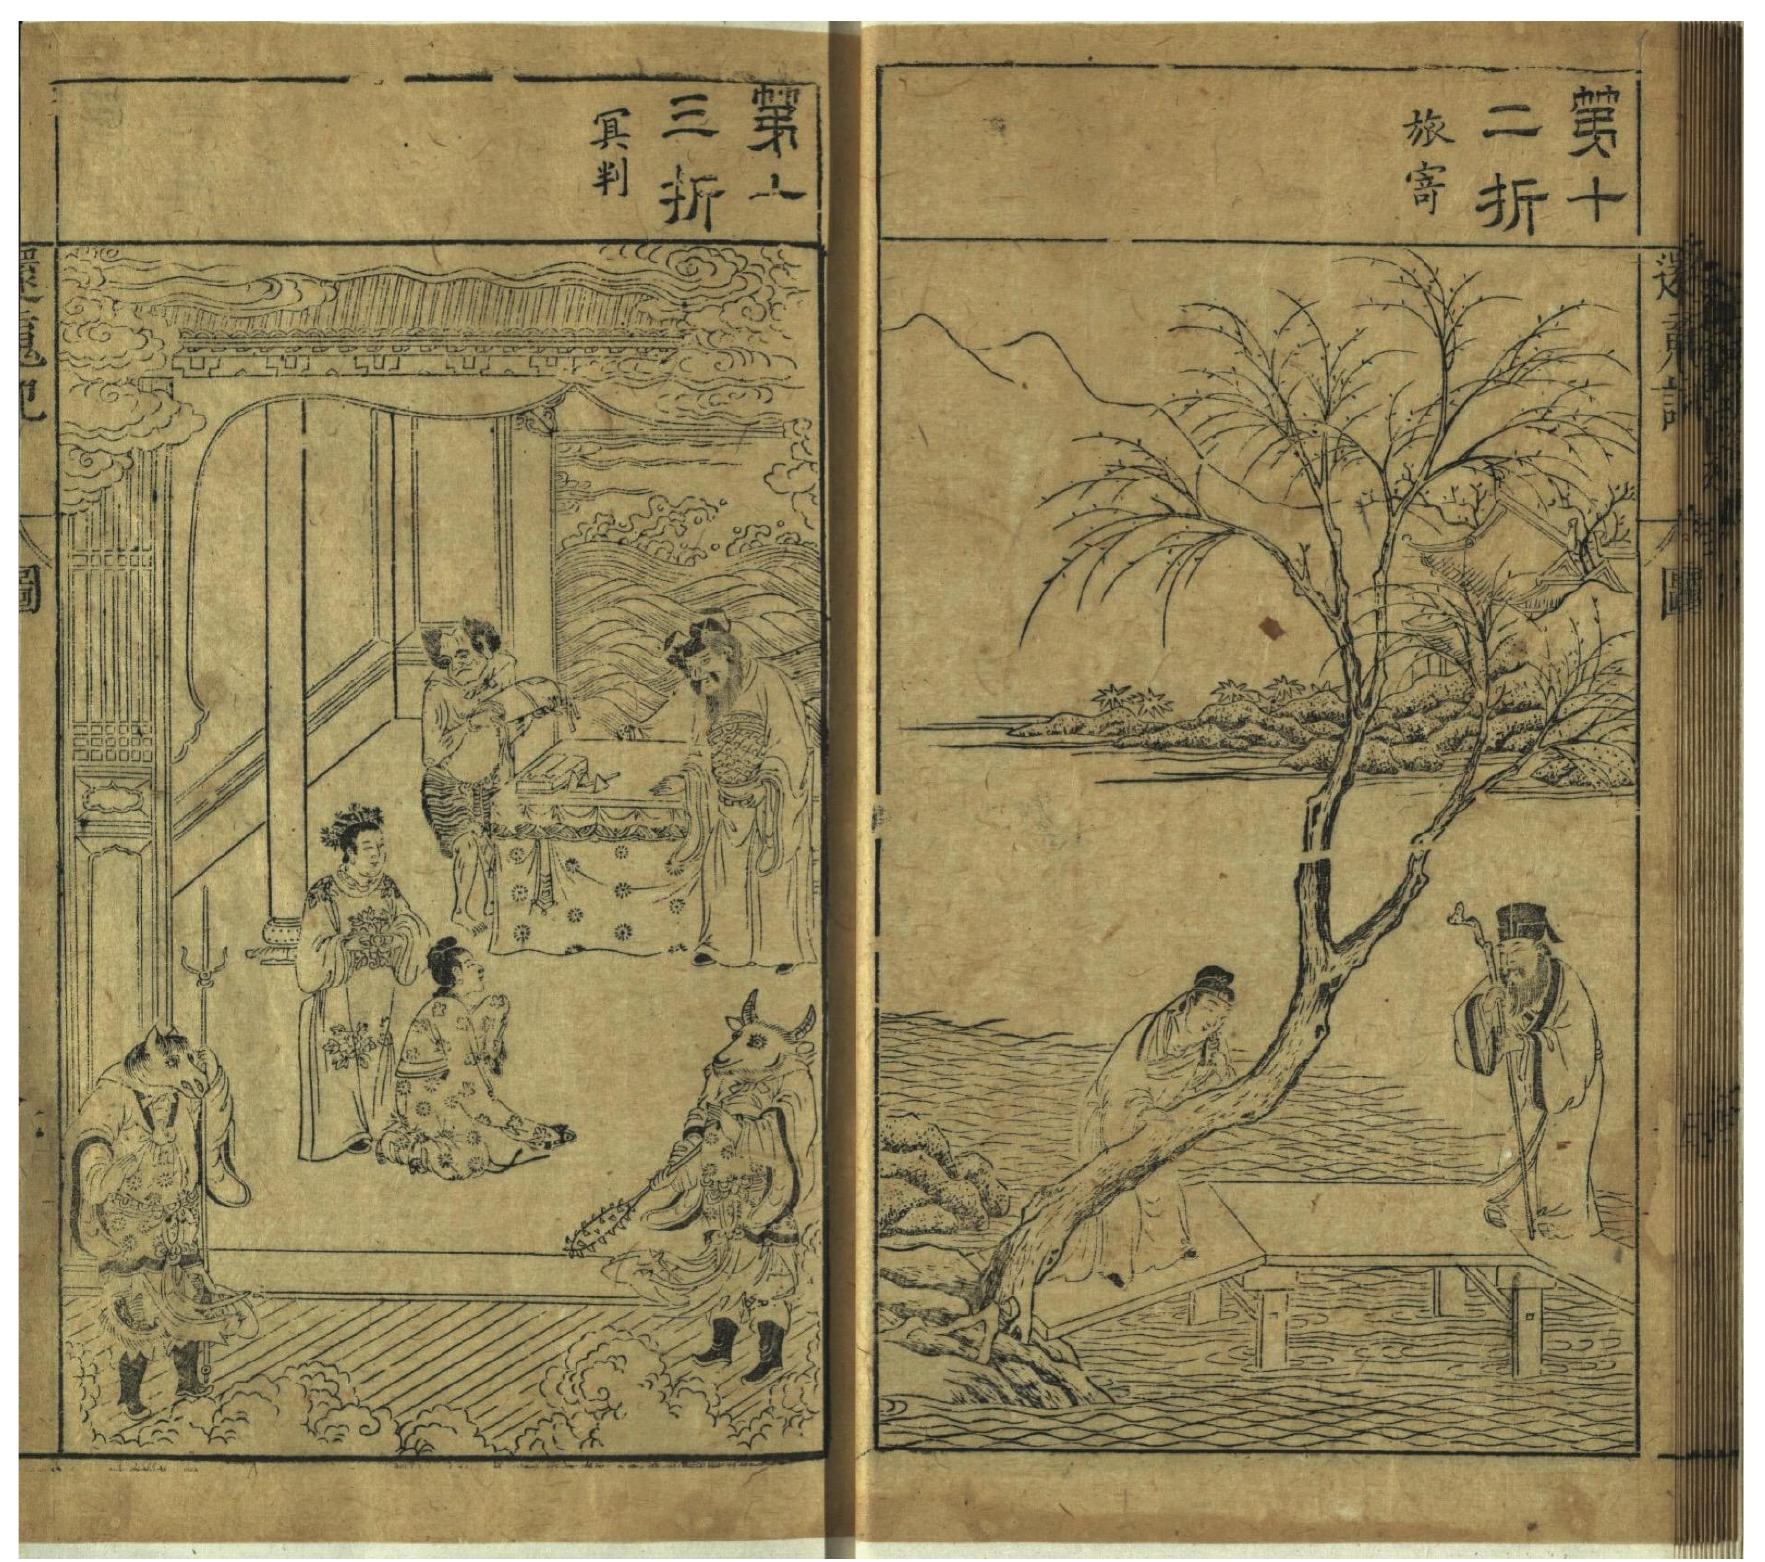 第十
二折
旅寄
第十
三折
冥判
還魂記
圖